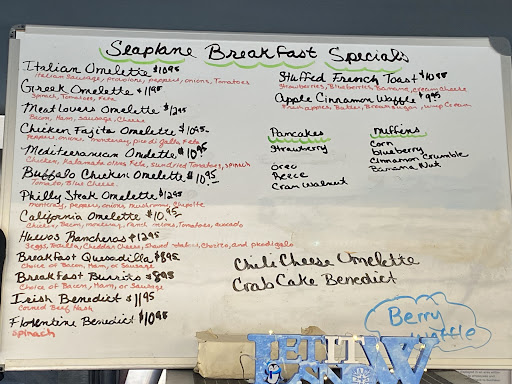 Seaplane Breakfast Specials
Italian Omelette $10.95
Italian Sausage, provolone, peppers, onions, Tomatoes
Greek Omelette $11.95
Spinach, Tomatoes, Feta
Meatlovers Omelette $12.95
Bacon, Ham, sausage, Cheese
Chicken Fajita Omelette $10.95
Peppers, onions, monteray, pico de gallo
Mediterranean Omelette $10.95
Chicken, Kalamata olives, Feta, sundried Tomatoes, spinach
Buffalo Chicken Omelette $10.95
Tomato, Blue Cheese
Philly Steak Omelette $12.95
monteray, Peppers, onions, mushrooms, chipotle
California Omelette $10.95
Chicken, Bacon, monteray, onions, Tomatoes, avocado
Huevos Rancheros $12.95
3eggs, Tortilla, Cheddar Cheese, Chorizo, and picodegallo
Breakfast Quesadilla $8.95
Choice of Bacon, Ham, or Sausage
Breakfast Burrito $8.95
Choice of Bacon, Ham, or Sausage
Irish Benedict $11.95
Corned Beef Hash
Florentine Benedict $10.95
Spinach
Stuffed French Toast $10.95
Strawberries, Blueberries, Banana, cream cheese
Apple Cinnamon Waffle $9.95
apples, Butter, Brown sugar, whip cream
Pancakes
Strawberry
oreo
Reece
Cran Walnut
muffins
Corn
blueberry
Cinnamon Crumble
Banana Nut
Chili Cheese Omelette
Crab Cake Benedict
Berry
Waffle
LET IT
SNOW